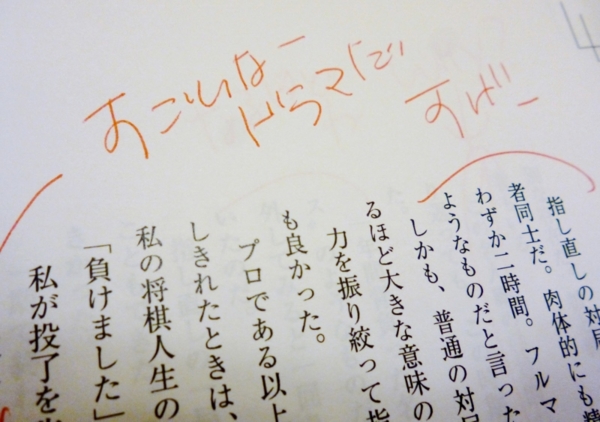 すごいなー
ドラマだ
すげー
指し直しの対局
者同士だ。肉体的にも精
わずか二時間。フルマ
ようなものだと言った
しかも、普通の対局
るほど大きな意味の
力を振り絞って指
も良かった。
プロである以上
しきれたときは、
私の将棋人生の
「負けました」
私が投了を